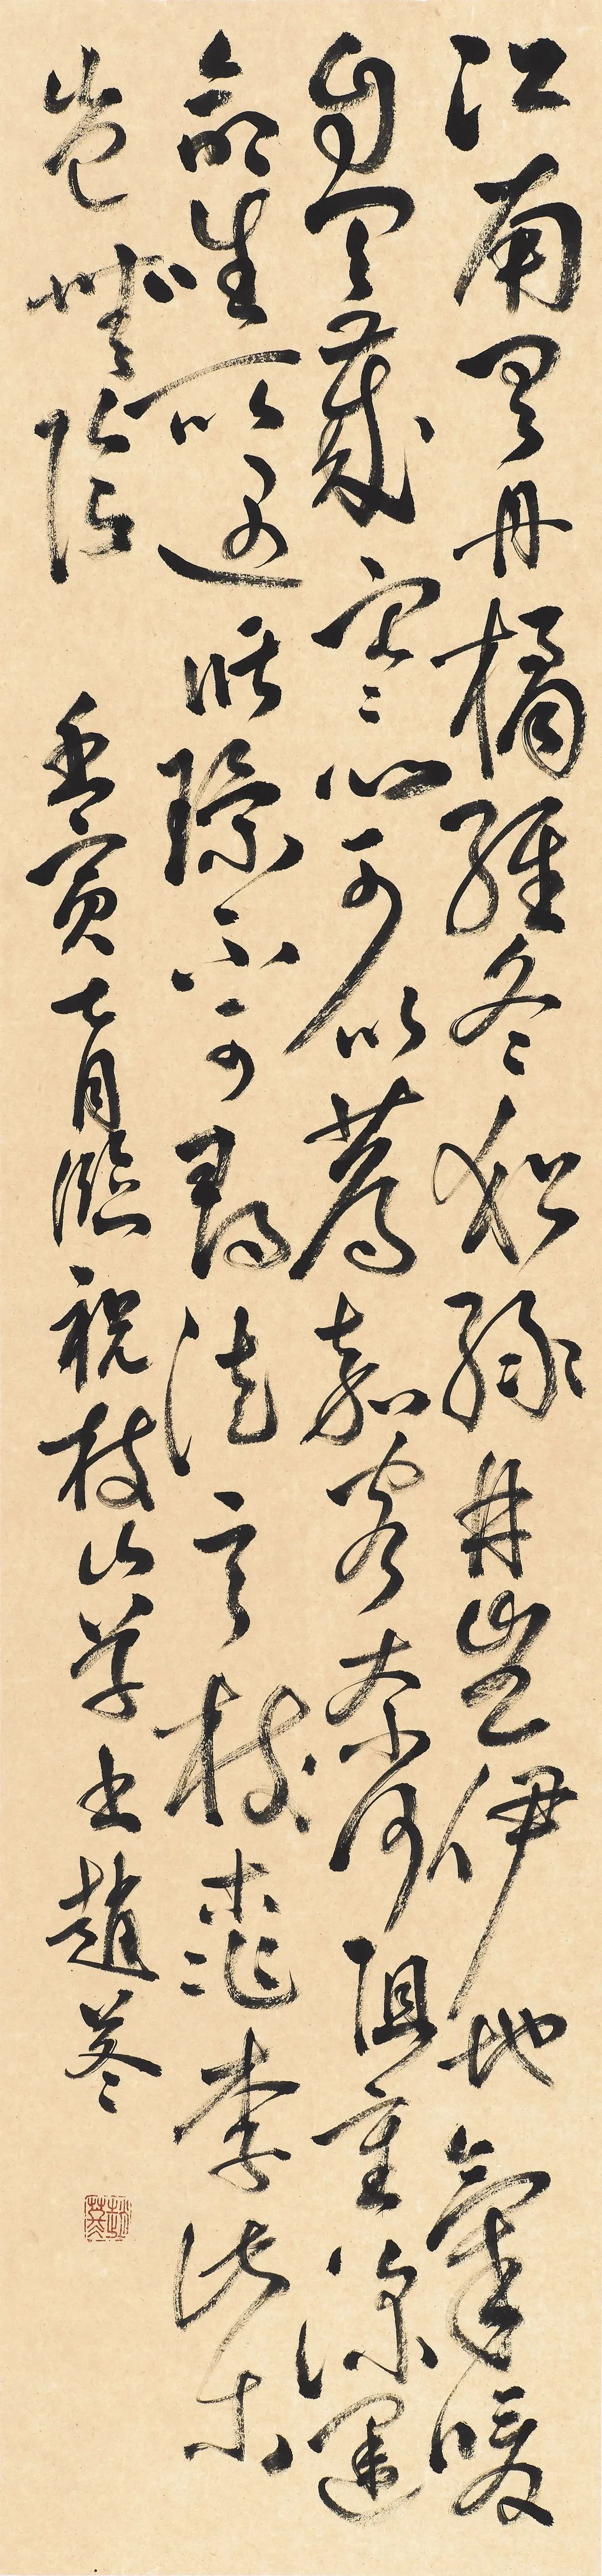 江南有丹橘經冬猶綠林豈伊地氣暖
自有歲寒心可以薦嘉客奈何阻重深運
命唯所遇循環不可尋徒言樹桃李此木
豈無陰 壬寅七月臨祝枝山草書趙苳